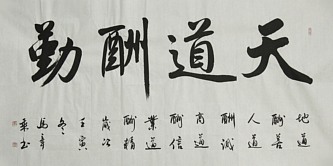 天道酬勤
地道
酬善
人道
酬誠
商道
酬信
業道
酬精
歲次
壬寅
冬